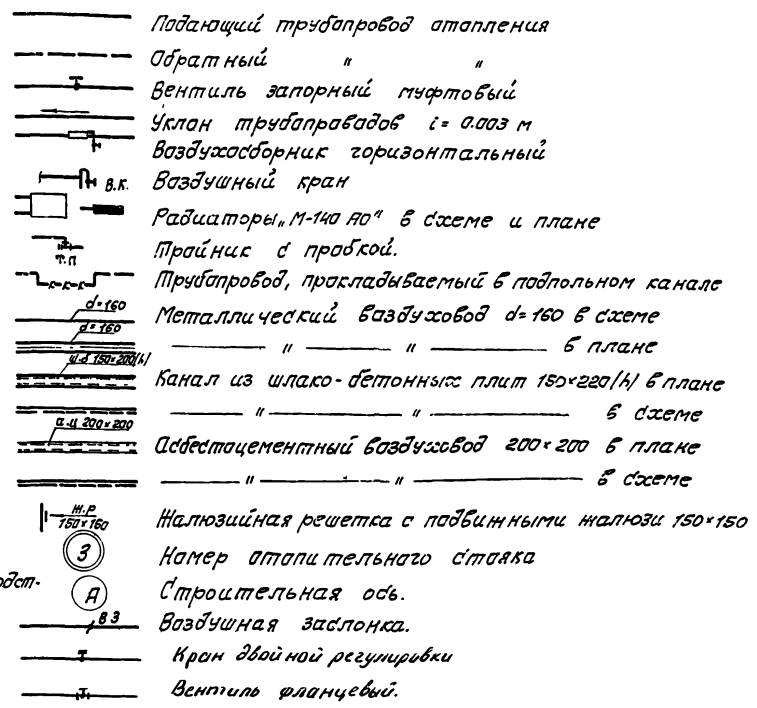 Подающий трубопровод отопления
Обратный " "
Вентиль запорный муфтовый
Уклон трубопроводов i = 0.003 м
Воздухосборник горизонтальный
В.К. Воздушный кран
Радиаторы „М-140 АО" в схеме и плане
Т.П Тройник с пробкой.
Трубопровод, прокладываемый в подпольном канале
d=160 Металлический воздуховод d=160 в схеме
d=160 — " — " — в плане
ш.б 150×200(h) Канал из шлако-бетонных плит 150×220(h) в плане
— " — " — в схеме
а.ц 200×200 Асбестоцементный воздуховод 200×200 в плане
— " — " — в схеме
Ж.Р 150×160 Жалюзийная решетка с подвижными жалюзи 150×150
3 Номер отопительного стояка
одст-
А Строительная ось.
ВЗ Воздушная заслонка.
Кран двойной регулировки
Вентиль фланцевый.